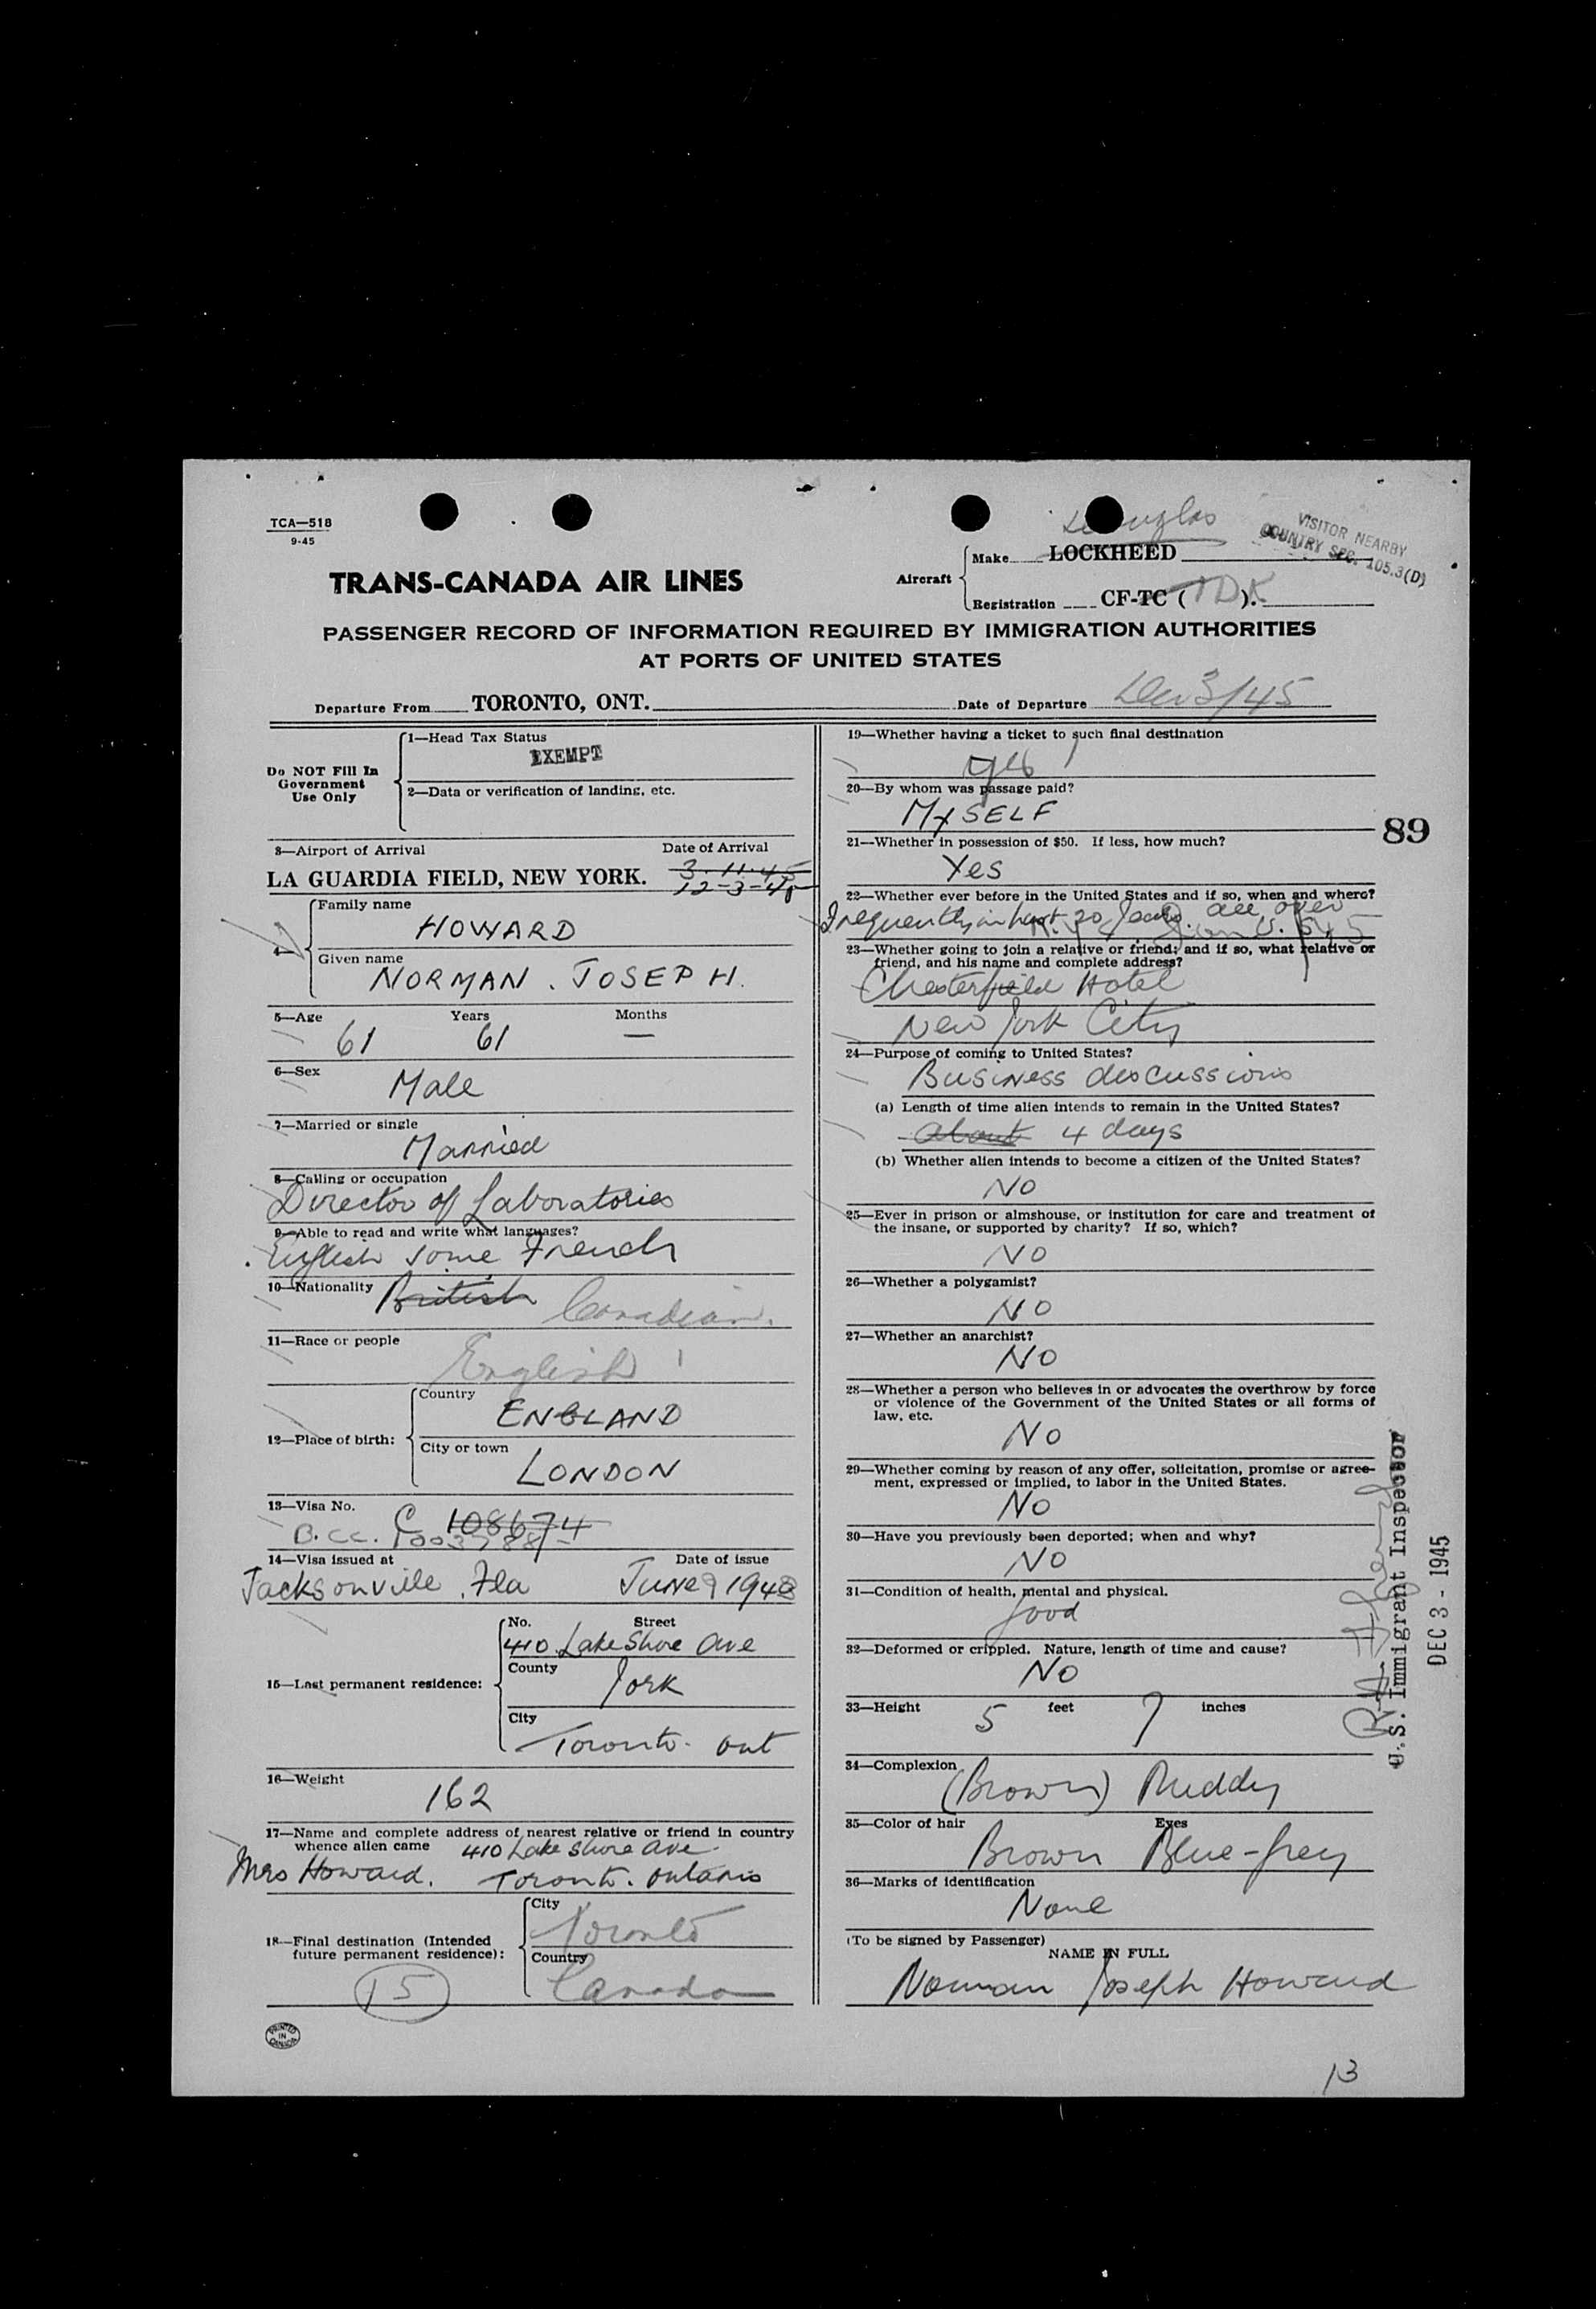 TCA—518
9-45
VISITOR NEARBY
COUNTRY SEC. 105.3(D)
TRANS-CANADA AIR LINES
Aircraft
Make LOCKHEED
Registration CF-TC ( TDK ).
PASSENGER RECORD OF INFORMATION REQUIRED BY IMMIGRATION AUTHORITIES
AT PORTS OF UNITED STATES
Departure From TORONTO, ONT. Date of Departure Dec 3/45
Do NOT Fill In
Government
Use Only
1—Head Tax Status
EXEMPT
2—Data or verification of landing, etc.
3—Airport of Arrival Date of Arrival
3.11.45
LA GUARDIA FIELD, NEW YORK. 12-3-45
4—
Family name
HOWARD
Given name
NORMAN . JOSEPH.
5—Age Years Months
61 61 —
6—Sex
Male
7—Married or single
Married
8—Calling or occupation
Director of Laboratories
9—Able to read and write what languages?
English some French
10—Nationality British Canadian.
11—Race or people
English
12—Place of birth:
Country
ENGLAND
City or town
LONDON
13—Visa No. C 108674
B.CC.
14—Visa issued at Date of issue
Jacksonville . Fla June 9 1943
15—Last permanent residence:
No. Street
410 Lake Shore Ave
County
York
City
Toronto. Ont
16—Weight
162
17—Name and complete address of nearest relative or friend in country
whence alien came 410 Lake Shore Ave.
Mrs Howard. Toronto. Ontario
18—Final destination (Intended
future permanent residence):
City
Toronto
Country
Canada
15
PRINTED
IN
CANADA
19—Whether having a ticket to such final destination
yes
20—By whom was passage paid?
MySELF
21—Whether in possession of $50. If less, how much?
Yes
22—Whether ever before in the United States and if so, when and where?
Frequently in last 20 years. all over U.S.
23—Whether going to join a relative or friend; and if so, what relative or
friend, and his name and complete address?
Chesterfield Hotel
New York City
24—Purpose of coming to United States?
Business discussions
(a) Length of time alien intends to remain in the United States?
about 4 days
(b) Whether alien intends to become a citizen of the United States?
NO
25—Ever in prison or almshouse, or institution for care and treatment of
the insane, or supported by charity? If so, which?
NO
26—Whether a polygamist?
NO
27—Whether an anarchist?
NO
28—Whether a person who believes in or advocates the overthrow by force
or violence of the Government of the United States or all forms of
law, etc.
NO
29—Whether coming by reason of any offer, solicitation, promise or agree-
ment, expressed or implied, to labor in the United States.
NO
30—Have you previously been deported; when and why?
NO
31—Condition of health, mental and physical.
good
32—Deformed or crippled. Nature, length of time and cause?
NO
33—Height 5 feet 7 inches
34—Complexion
(Brown) Ruddy
35—Color of hair Eyes
Brown Blue-grey
36—Marks of identification
None
(To be signed by Passenger)
NAME IN FULL
Norman Joseph Howard
89
U.S. Immigrant Inspector
DEC 3 - 1945
13